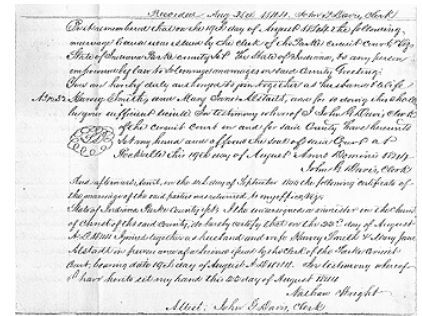 Recorded Aug 31st 1844. John G. Davis, Clerk
Be it remembered that on the 19th day of August 1844 the following
marriage license was issued by the clerk of the Parke circuit court viz:
State of Indiana Parke County Sct. The State of Indiana, to any person
empowered by law to solemnize marriages in said County Greeting.
You are hereby duly authorized to join together as Husband and Wife
Harvey Smith and Mary Jane Alstadt, and for so doing this shall
be your sufficient Warrant. In testimony whereof I John G. Davis, Clerk
of the circuit court in and for said County have hereunto
set my hand and affixed the seal of said Court at
Rockville this 19th day of August Anno Domini 1844
John G. Davis, Clerk
And afterwards, to wit, on the day of September 1844 the following certificate
of the marriage of the said parties was returned to my office,
State of Indiana Parke County Sct. I the undersigned a minister on the
of of the said County, do hereby certify that on the 22nd day of August
A.D. 1844 I joined together as husband and wife Harvey Smith & Mary Jane
Alstadt in of a license issued by the clerk of the Parke Circuit
Court, bearing date 19th day of August A.D. 1844. In testimony whereof
I have hereunto set my hand this 22nd day of August 1844
Nathan Wright
Attest: John G. Davis, Clerk